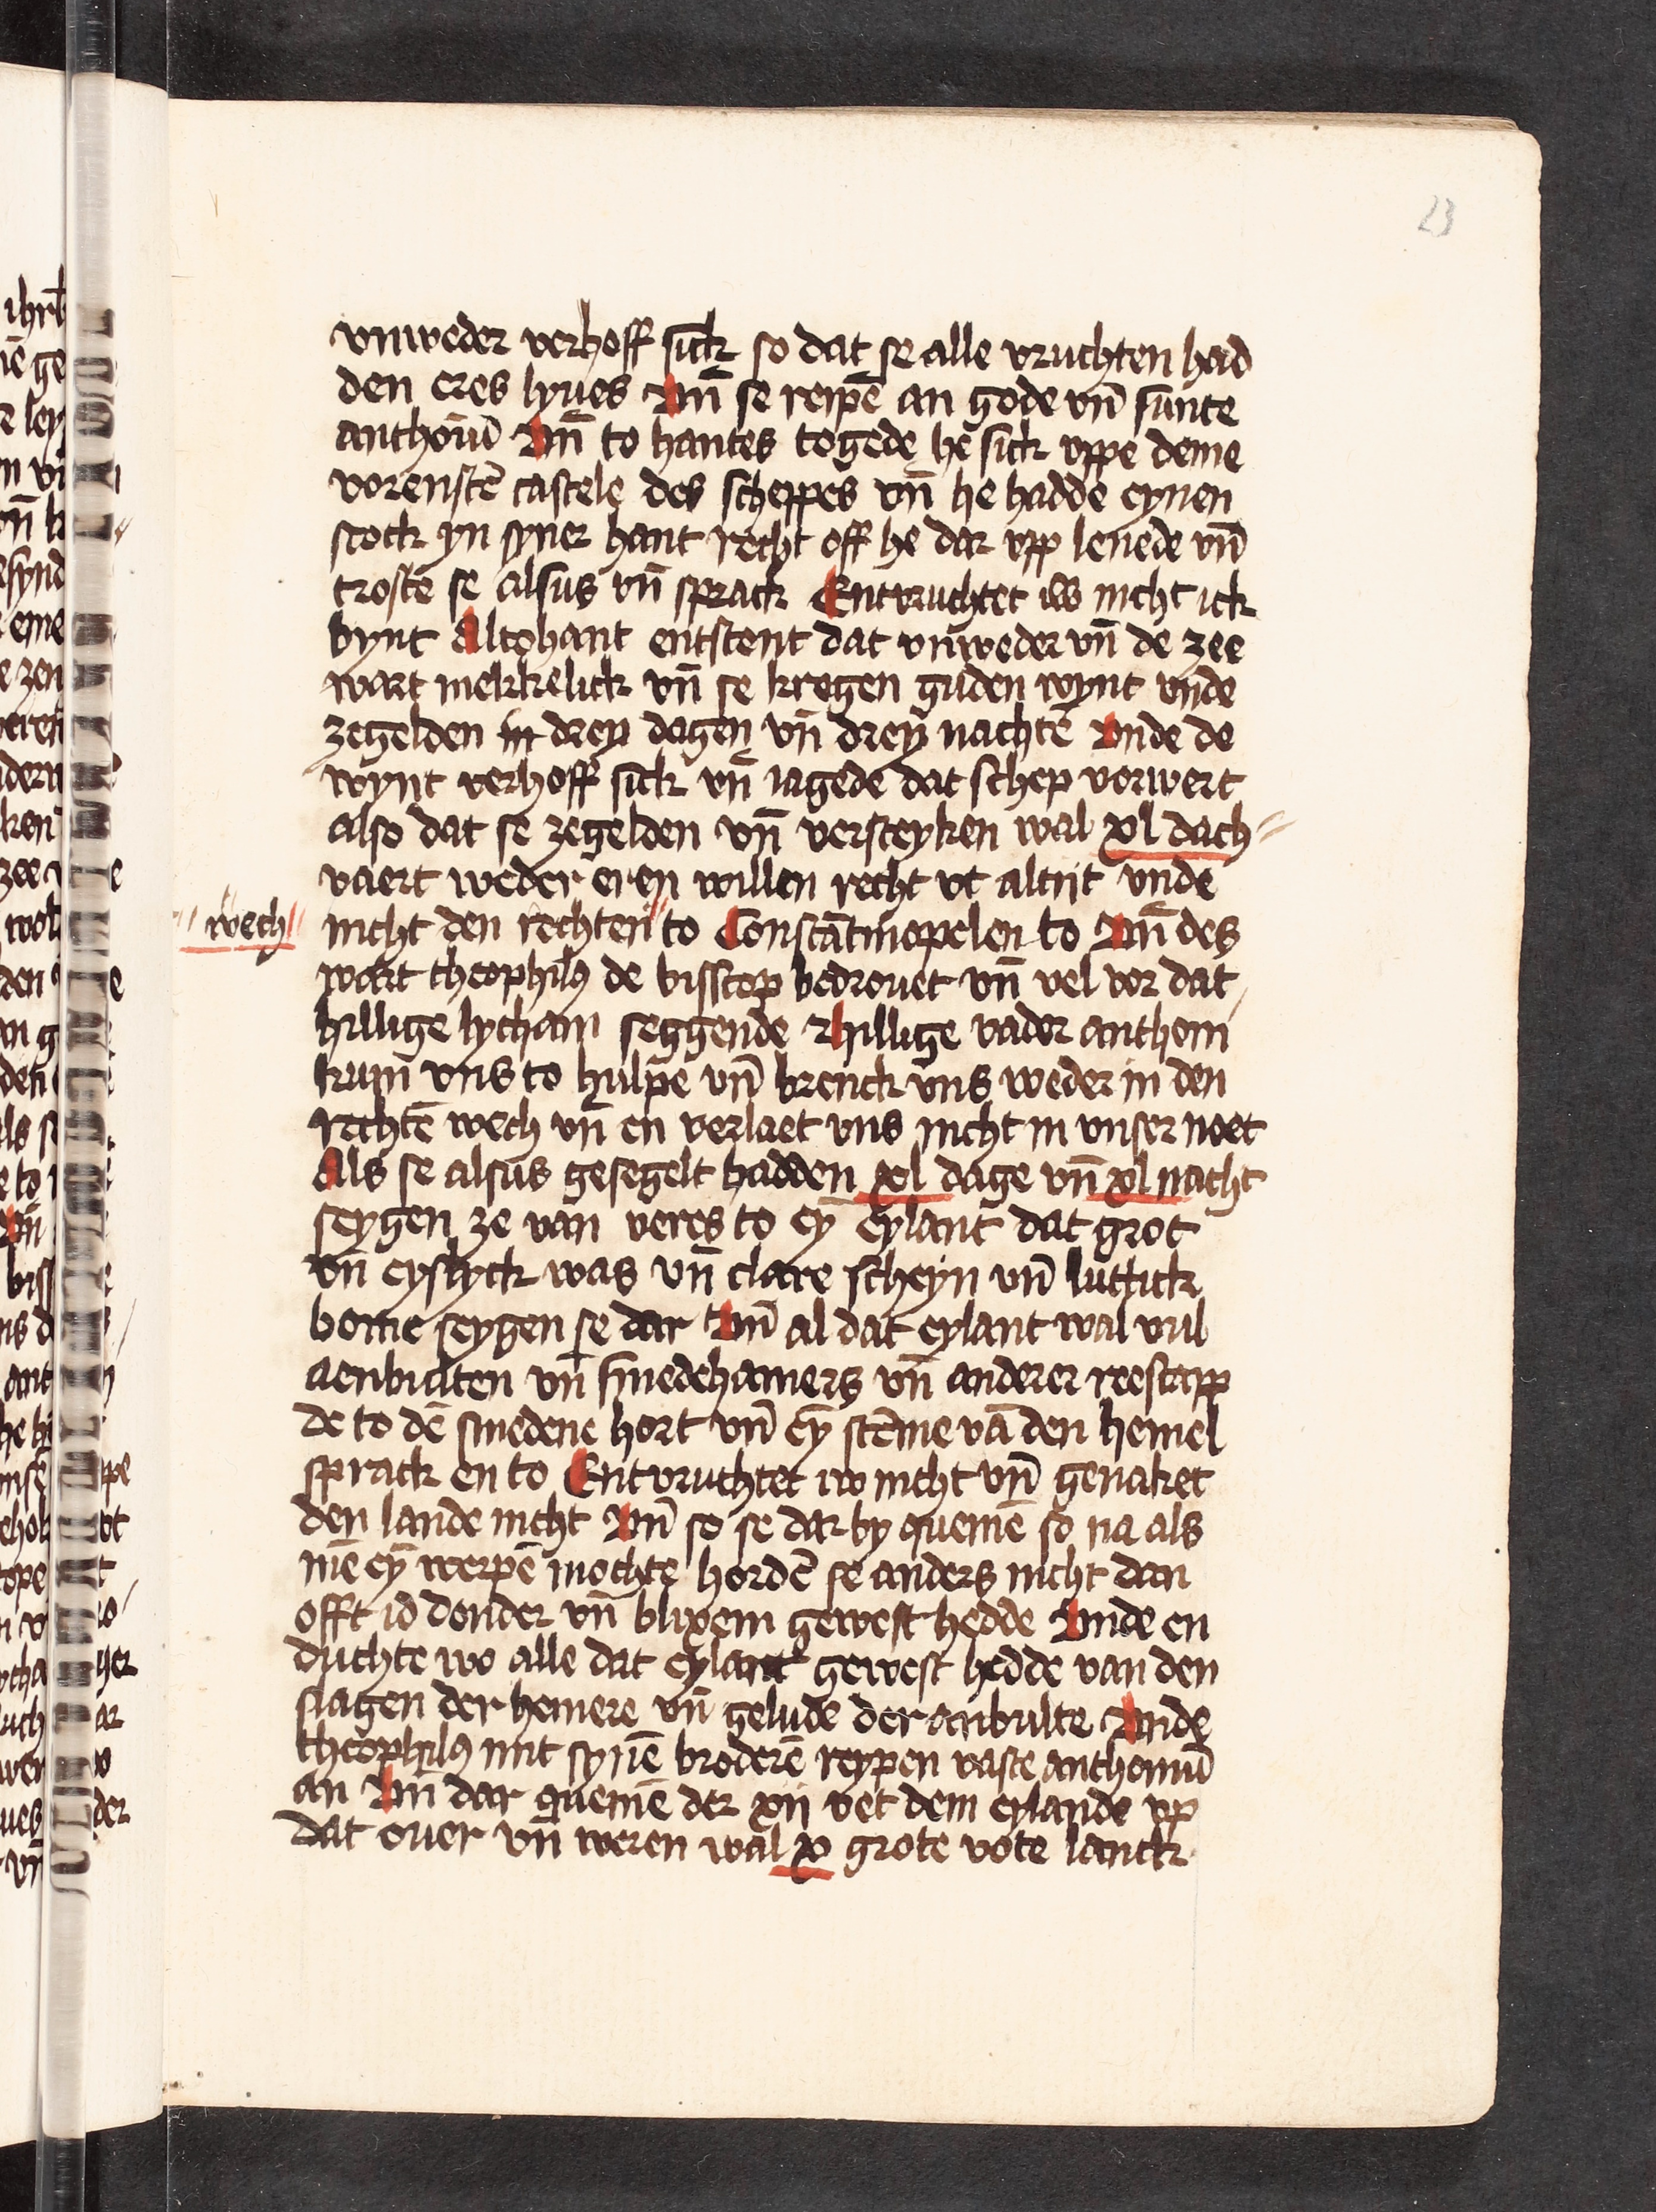 23
vnweder verhoff sick so dat se alle vruchten had
den eres lyues Vn̄ se reipē an gode vn̄ sunte
anthoniū Vn̄ to hantes togede he sick vppe deme
vorenstē castele des scheppes vn̄ he hadde eynen
stock yn syner hant recht off he dar vpp lenede vn̄
trostē se alsus vn̄ sprack Entvruchtet iw nicht ick
bynt Altohant entstent dat vnweder vn̄ de zee
wart melckelick vn̄ se kregen guden wynt vnde
zegelden in drey dagen vn̄ drey nachtē Vnde de
wynt verhoff sick vn̄ iagede dat schep vorwert
also dat se zegelden vn̄ versteyken wal xl dach
vaert weder eren willen recht vt altijt vnde
wech
nicht den rechten to Constātinopelen to Vn̄ des
wart theophilꝰ de bisscop bedrouet vn̄ vel vor dat
hillige lycham seggende O hillige vader anthoni
kum vns to hulpe vn̄ brenck vns weder in den
rechtē wech vn̄ en verlaet vns nicht in vnser noet
Als se alsus gesegelt hadden xl dage vn̄ xl nacht
seygen ze van veres to eȳ eylant dat grot
vn̄ eyslyck was vn̄ clare scheyn vn̄ luttick
bome seygen se dar Vn̄ al dat eylant wal vul
aenbulten vn̄ smedehamers vn̄ anderer reescapp
de to dē smedene hort vn̄ eȳ stēme vā den hemel
sprack en to Entvruchtet iw nicht vn̄ genaket
den lande nicht Vn̄ so se dar by quemē so na als
mē eȳ werpē mochte hordē se anders nicht dan
offt id donder vn̄ blixem gewest hedde Vnde en
duchte wo alle dat eylant gewest hedde van den
slagen der hemere vn̄ gelude der anbulte Vnde
theophilꝰ mit synē broderē reypen vaste anthoniū
an Vn̄ dar quemē der xij vet dem eylande vp
dat ouer vn̄ weren wal x grote vote lanck